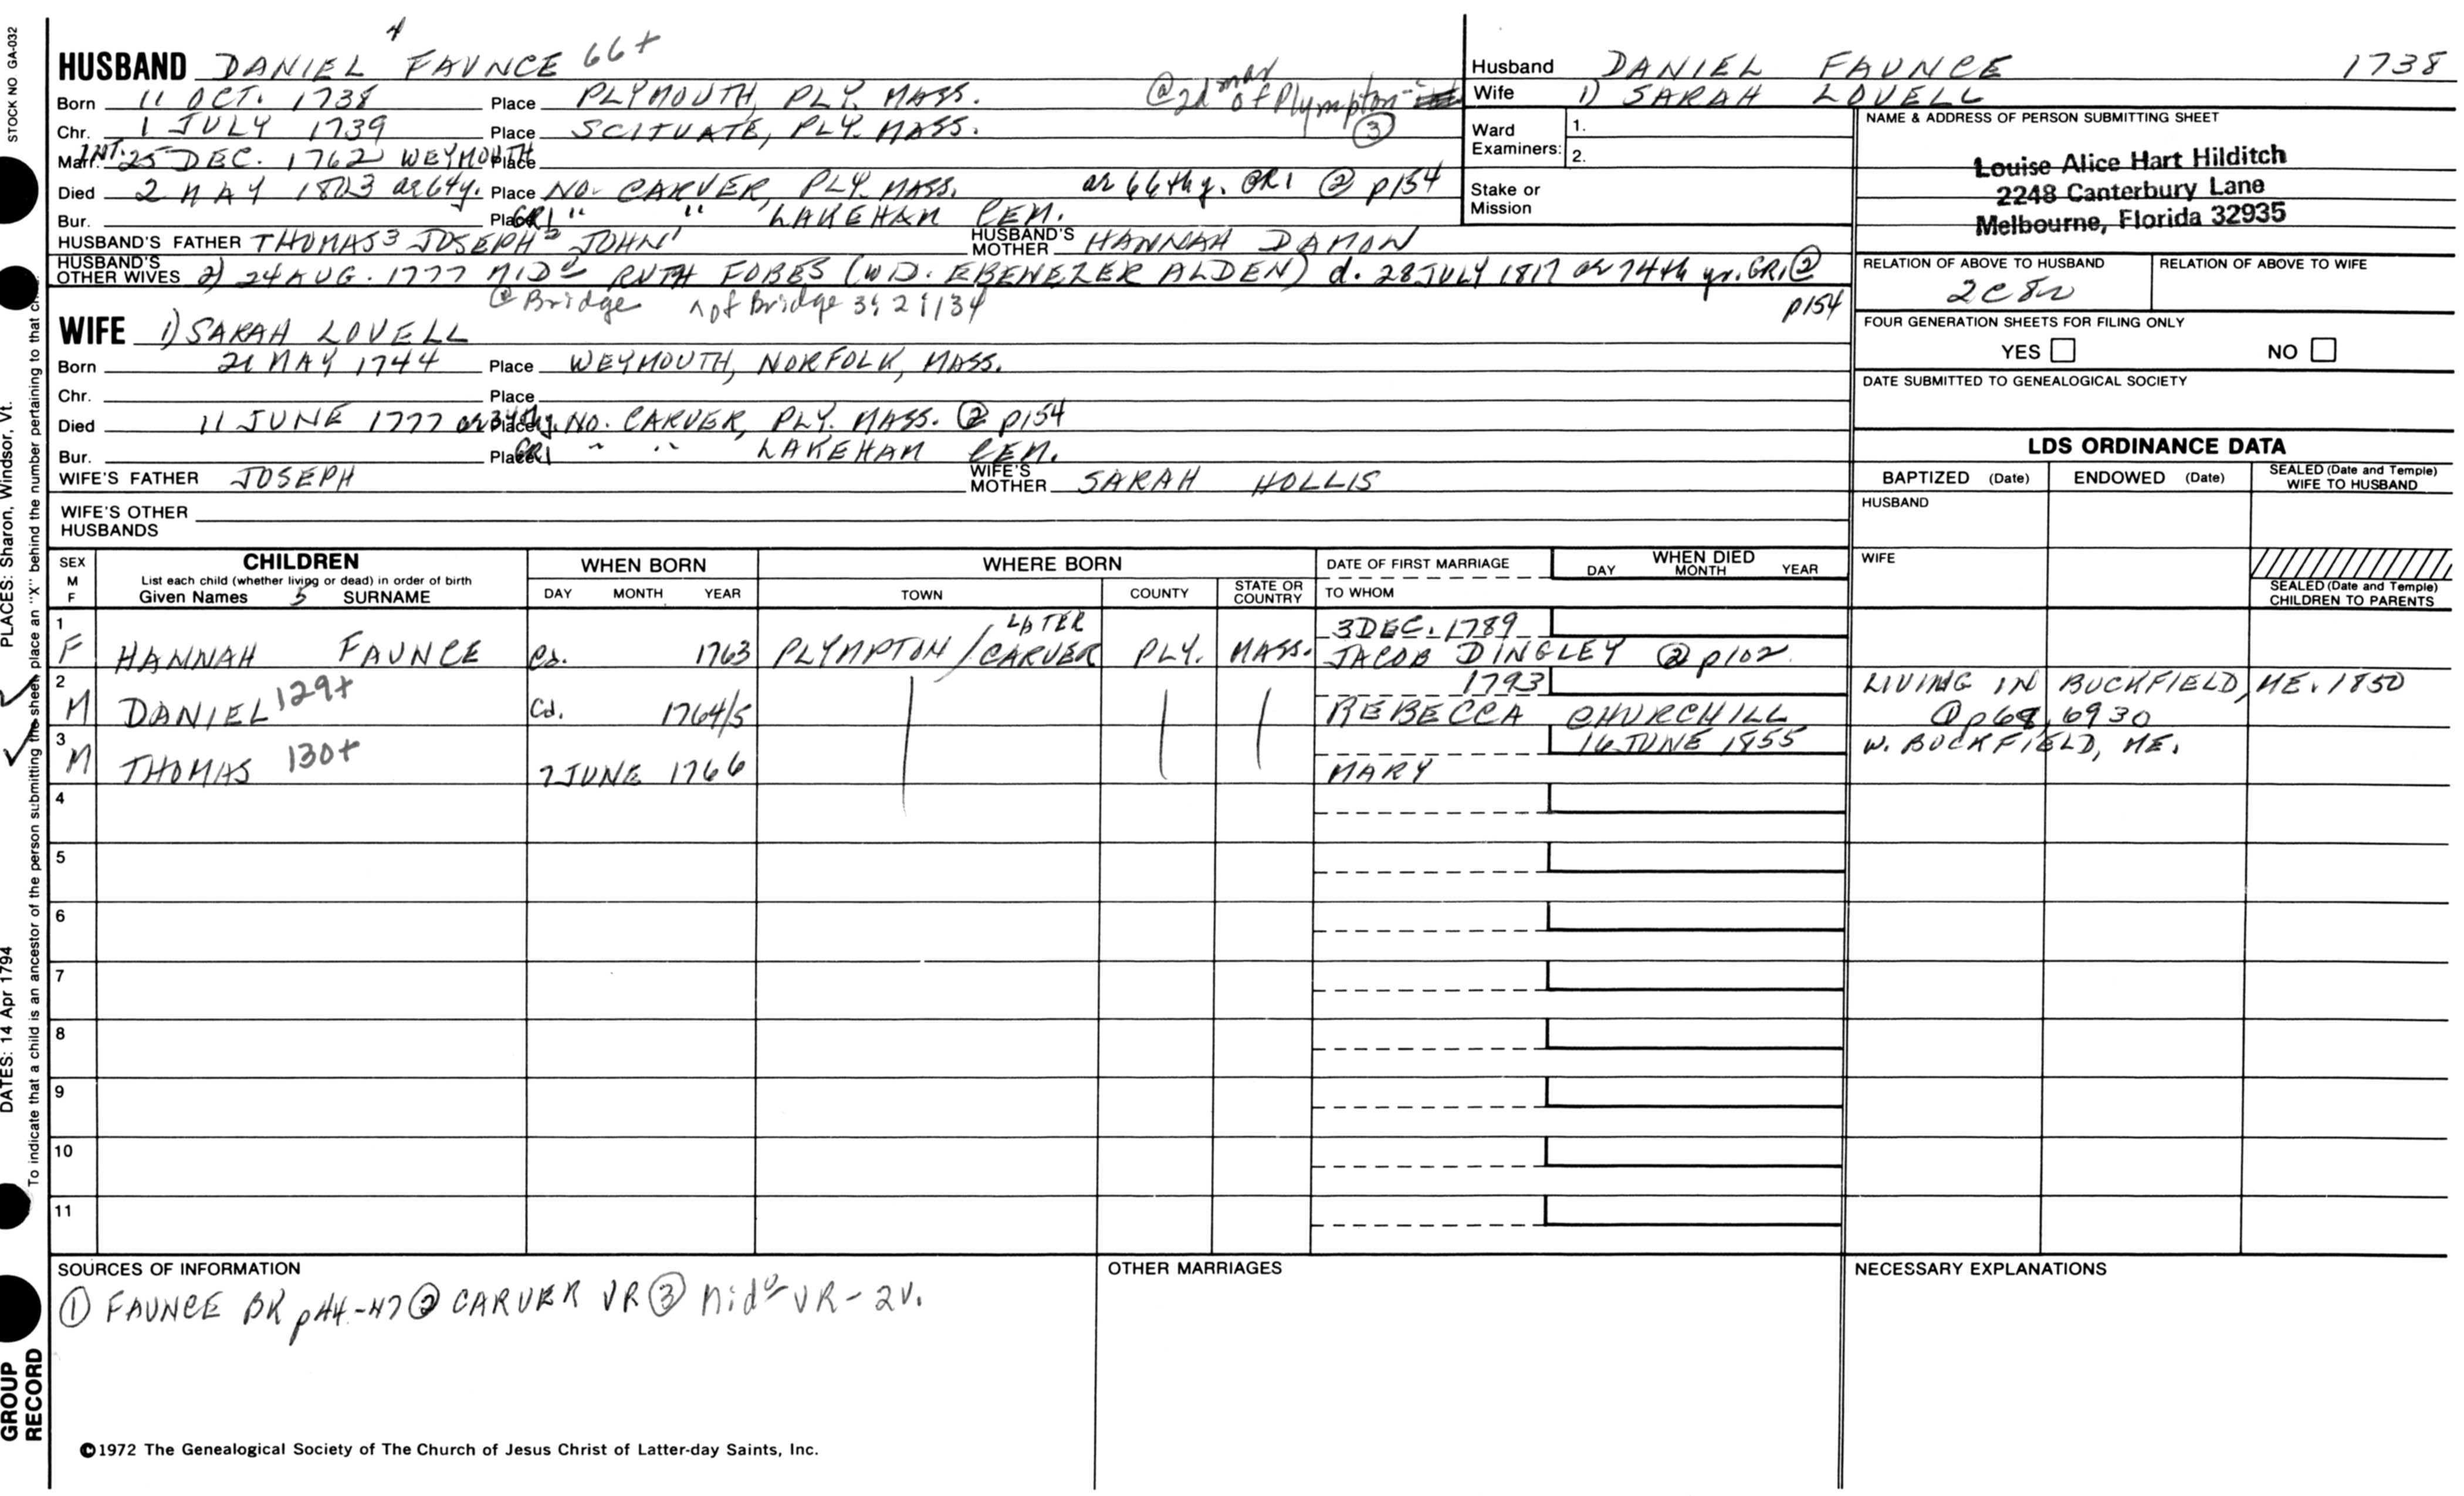 STOCK NO GA-032
4
HUSBAND DANIEL FAUNCE 66+
Born 11 OCT. 1738 Place PLYMOUTH, PLY. MASS.
@ 2d mar of Plympton - ③
Chr. 1 JULY 1739 Place SCITUATE, PLY. MASS.
Marr. INT. 25 DEC. 1762 WEYMOUTH Place
Died 2 MAY 1803 ae 64y. Place NO. CARVER, PLY. MASS. ae 66th y. GR1 ② p154
Bur. Place GR1 " " LAKEHAM CEM.
HUSBAND'S FATHER THOMAS3 JOSEPH2 JOHN1 HUSBAND'S MOTHER HANNAH DAMON
HUSBAND'S OTHER WIVES 2) 24 AUG. 1777 MIDo RUTH FOBES (WD. EBENEZER ALDEN) d. 28 JULY 1817 ae 74th yr. GR1 ② p154
@ Bridge not Bridge 3: 2 1134
WIFE 1) SARAH LOVELL
Born 21 MAY 1744 Place WEYMOUTH, NORFOLK, MASS.
Chr. Place
Died 11 JUNE 1777 ae 34th y. Place NO. CARVER, PLY. MASS. ② p154
Bur. Place GR1 " " LAKEHAM CEM.
WIFE'S FATHER JOSEPH WIFE'S MOTHER SARAH HOLLIS
WIFE'S OTHER HUSBANDS
Husband DANIEL FAUNCE 1738
Wife 1) SARAH LOVELL
Ward Examiners: 1.
2.
Stake or Mission
NAME & ADDRESS OF PERSON SUBMITTING SHEET
Louise Alice Hart Hilditch
2248 Canterbury Lane
Melbourne, Florida 32935
RELATION OF ABOVE TO HUSBAND RELATION OF ABOVE TO WIFE
2C8R
FOUR GENERATION SHEETS FOR FILING ONLY
YES NO
DATE SUBMITTED TO GENEALOGICAL SOCIETY
LDS ORDINANCE DATA
BAPTIZED (Date) ENDOWED (Date) SEALED (Date and Temple) WIFE TO HUSBAND
HUSBAND
WIFE
SEALED (Date and Temple) CHILDREN TO PARENTS
SEX M F CHILDREN WHEN BORN WHERE BORN DATE OF FIRST MARRIAGE WHEN DIED
List each child (whether living or dead) in order of birth
Given Names 5 SURNAME DAY MONTH YEAR TOWN COUNTY STATE OR COUNTRY TO WHOM DAY MONTH YEAR
1 F HANNAH FAUNCE Cd. 1763 PLYMPTON / LATER CARVER PLY. MASS. 3 DEC. 1789
JACOB DINGLEY ② p102
2 M DANIEL 129+ Cd. 1764/5 1793 LIVING IN BUCKFIELD, ME. 1850
REBECCA CHURCHILL ① p68, 6930
3 M THOMAS 130+ 7 JUNE 1766 16 JUNE 1855 W. BUCKFIELD, ME.
MARY
4
5
6
7
8
9
10
11
SOURCES OF INFORMATION
① FAUNCE BK p44-47 ② CARVER VR ③ Mido VR - 2V.
OTHER MARRIAGES
NECESSARY EXPLANATIONS
©1972 The Genealogical Society of The Church of Jesus Christ of Latter-day Saints, Inc.
PLACES: Sharon, Windsor, Vt.
DATES: 14 Apr 1794
To indicate that a child is an ancestor of the person submitting the sheet, place an "X" behind the number pertaining to that
GROUP RECORD